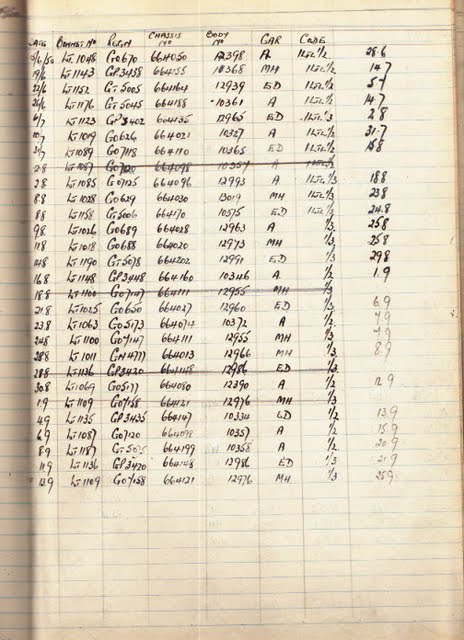 DATE BONNET No REGN CHASSIS No BODY No CAR CODE
5/6/50 LT 1048 GO 670 664050 12398 A 1LTL1/2 28.6
19/6 LT 1143 GP 3438 664155 10368 MH 1LTL1/2 14.7
22/6 LT 1152 GT 5005 664164 12939 ED 1LTL1/3 5.7
26/6 LT 1176 GT 5045 664188 10361 A 1LTL1/2 14.7
4/7 LT 1123 GP 3402 664135 12965 ED 1LTL1/3 2.8
10/7 LT 1009 GO 626 664021 10327 A 1LTL1/2 31.7
31/7 LT 1089 GO 7118 664110 10365 ED 1LTL1/2 15.8
2.8 LT 1087 GO 7120 664098 10357 A 1LTL1/2
2.8 LT 1085 GO 7125 664096 12993 A 1LTL1/3 18.8
8.8 LT 1028 GO 629 664030 13019 MH 1LTL1/3 23.8
8.8 LT 1158 GT 5006 664170 10375 ED 1LTL1/2 24.8
9.8 LT 1026 GO 689 664028 12963 A 1/3 25.8
11.8 LT 1018 GO 688 664020 12973 MH 1/3 25.8
14.8 LT 1190 GT 5078 664202 12991 ED 1/3 29.8
16.8 LT 1148 GP 3448 664160 10346 A 1/2 1.9
18.8 LT 1100 GO 7147 664111 12955 MH 1/3
21.8 LT 1025 GO 650 664027 12960 ED 1/3 6.9
23.8 LT 1063 GO 5173 664074 10372 A 1/2 7.9
24.8 LT 1100 GO 7147 664111 12955 MH 1/3 7.9
28.8 LT 1011 GN 4777 664013 12966 MH 1/3 8.9
28.8 LT 1136 GP 3420 664148 12986 ED 1/3
30.8 LT 1069 GO 5177 664080 12390 A 1/2 12.9
1.9 LT 1109 GO 7158 664121 12976 MH 1/3
4.9 LT 1135 GP 3435 664147 10334 ED 1/2 13.9
6.9 LT 1087 GO 7120 664098 10357 A 1/2 15.9
8.9 LT 1187 GT 5075 664199 10358 A 1/2 20.9
11.9 LT 1136 GP 3420 664148 12986 ED 1/3 21.9
12.9 LT 1109 GO 7158 664121 12976 MH 1/3 25.9